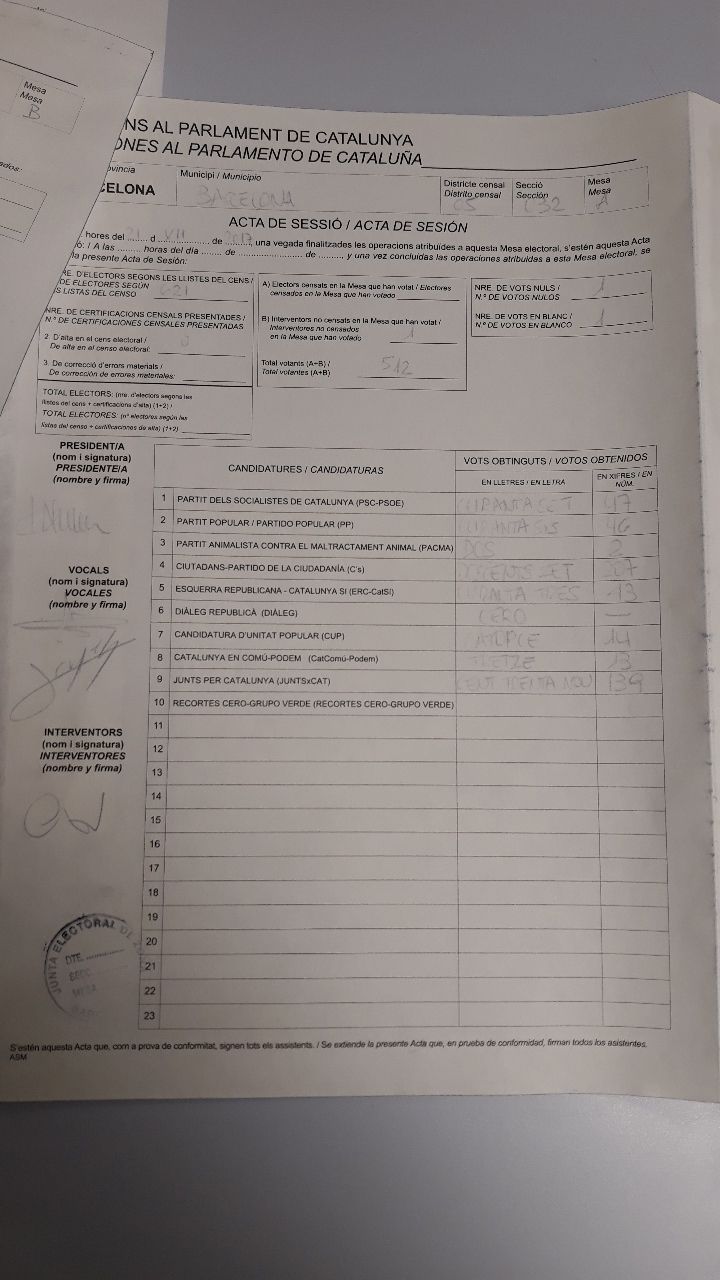 Mesa
Mesa
B
NS AL PARLAMENT DE CATALUNYA
ONES AL PARLAMENTO DE CATALUÑA
ovíncia
CELONA
Municipi / Municipio
BARCELONA
Districte censal
Distrito censal
Secció
Sección
Mesa
Mesa
A
ACTA DE SESSIÓ / ACTA DE SESIÓN
hores del 21 d VII de 2017, una vegada finalitzades les operacions atribuïdes a aquesta Mesa electoral, s'estén aquesta Acta
ó: / A las ......... horas del día ........ de ........................ de ......... y una vez concluidas las operaciones atribuidas a esta Mesa electoral, se
la presente Acta de Sesión:
RE. D'ELECTORS SEGONS LES LLISTES DEL CENS /
DE ELECTORES SEGÚN
S LISTAS DEL CENSO
NRE. DE CERTIFICACIONS CENSALS PRESENTADES /
N.º DE CERTIFICACIONES CENSALES PRESENTADAS
2. D'alta en el cens electoral /
De alta en el censo electoral:
3. De correcció d'errors materials /
De corrección de errores materiales:
TOTAL ELECTORS: (nre. d'electors segons les
llistes del cens + certificacions d'alta) (1+2) /
TOTAL ELECTORES: (nº electores según las
listas del censo + certificaciones de alta) (1+2)
A) Electors censats en la Mesa que han votat / Electores
censados en la Mesa que han votado
B) Interventors no censats en la Mesa que han votat /
Interventores no censados
en la Mesa que han votado
1
Total votants (A+B) /
Total votantes (A+B)
512
NRE. DE VOTS NULS /
N.º DE VOTOS NULOS
1
NRE. DE VOTS EN BLANC /
N.º DE VOTOS EN BLANCO
1
PRESIDENT/A
(nom i signatura)
PRESIDENTE/A
(nombre y firma)
VOCALS
(nom i signatura)
VOCALES
(nombre y firma)
INTERVENTORS
(nom i signatura)
INTERVENTORES
(nombre y firma)
CANDIDATURES / CANDIDATURAS
VOTS OBTINGUTS / VOTOS OBTENIDOS
EN LLETRES / EN LETRA
EN XIFRES / EN NÚM.
1 PARTIT DELS SOCIALISTES DE CATALUNYA (PSC-PSOE) 47
2 PARTIT POPULAR / PARTIDO POPULAR (PP) 46
3 PARTIT ANIMALISTA CONTRA EL MALTRACTAMENT ANIMAL (PACMA) DOS 2
4 CIUTADANS-PARTIDO DE LA CIUDADANÍA (C's) SET 207
5 ESQUERRA REPUBLICANA - CATALUNYA SÍ (ERC-CatSí) TRES
6 DIÀLEG REPUBLICÀ (DIÀLEG) CERO —
7 CANDIDATURA D'UNITAT POPULAR (CUP) 14
8 CATALUNYA EN COMÚ-PODEM (CatComú-Podem) TRETZE 13
9 JUNTS PER CATALUNYA (JUNTSxCAT) CENT TRENTA NOU 139
10 RECORTES CERO-GRUPO VERDE (RECORTES CERO-GRUPO VERDE)
11
12
13
14
15
16
17
18
19
20
21
22
23
JUNTA ELECTORAL DE
DTE.
MESA
S'estén aquesta Acta que, com a prova de conformitat, signen tots els assistents. / Se extiende la presente Acta que, en prueba de conformidad, firman todos los asistentes.
ASM